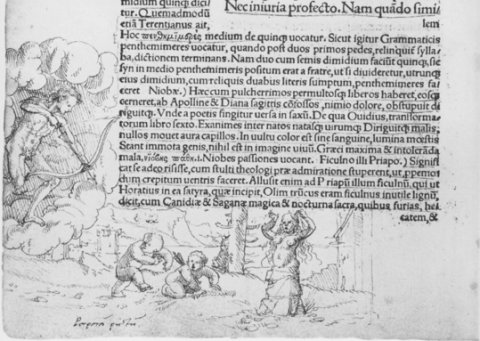 midium quinq; dici
tur. Quemadmodũ
etiã Terentianus ait,
Nec iniuria profecto. Nam quãdo simi
lem
Hoc medium de quinq; uocatur. Sicut igitur Grammaticis
penthemimeres uocatur, quando post duos primos pedes, relinquit sylla-
ba, dictionem terminans. Nam duo cum semis dimidium faciũt quinq; sic
syn in medio penthemimeris positum erat a fratre, ut si diuideretur, utrunq;
eius dimidium, cum reliquis duabus literis sumptum, penthemimeris fa
ceret Niobæ.) Hæc cum pulcherrimos permultosq; liberos haberet, eosq;
cerneret, ab Apolline & Diana sagittis cõfossos, nimio dolore, obstupuit di
riguitq;. Vnde a poetis fingitur uersa in saxũ. De qua Ouidius, transforma
torum libro sexto. Exanimes inter natos natasq; uirumq; Diriguitq; malis,
nullos mouet aura capillos. In uultu color est sine sanguine, lumina mœstis
Stant immota genis, nihil est in imagine uiuũ. Græci maxima & intolerãda
mala, Niobes passiones uocant. Ficulno illi Priapo.) Signifi
cat se adeo risisse, cum stulti theologi præ admiratione stuperent, ut ppemo
dum crepitum uentris faceret. Allusit enim ad Priapũ illum ficulnũ, qui ut
Horatius in ea satyra, quæ incipit, Olim trũcus eram ficulnus inutile lignũ,
dicit, cum Canidiæ & Saganæ magica & nocturna sacra, quibus furias, he
catem, &